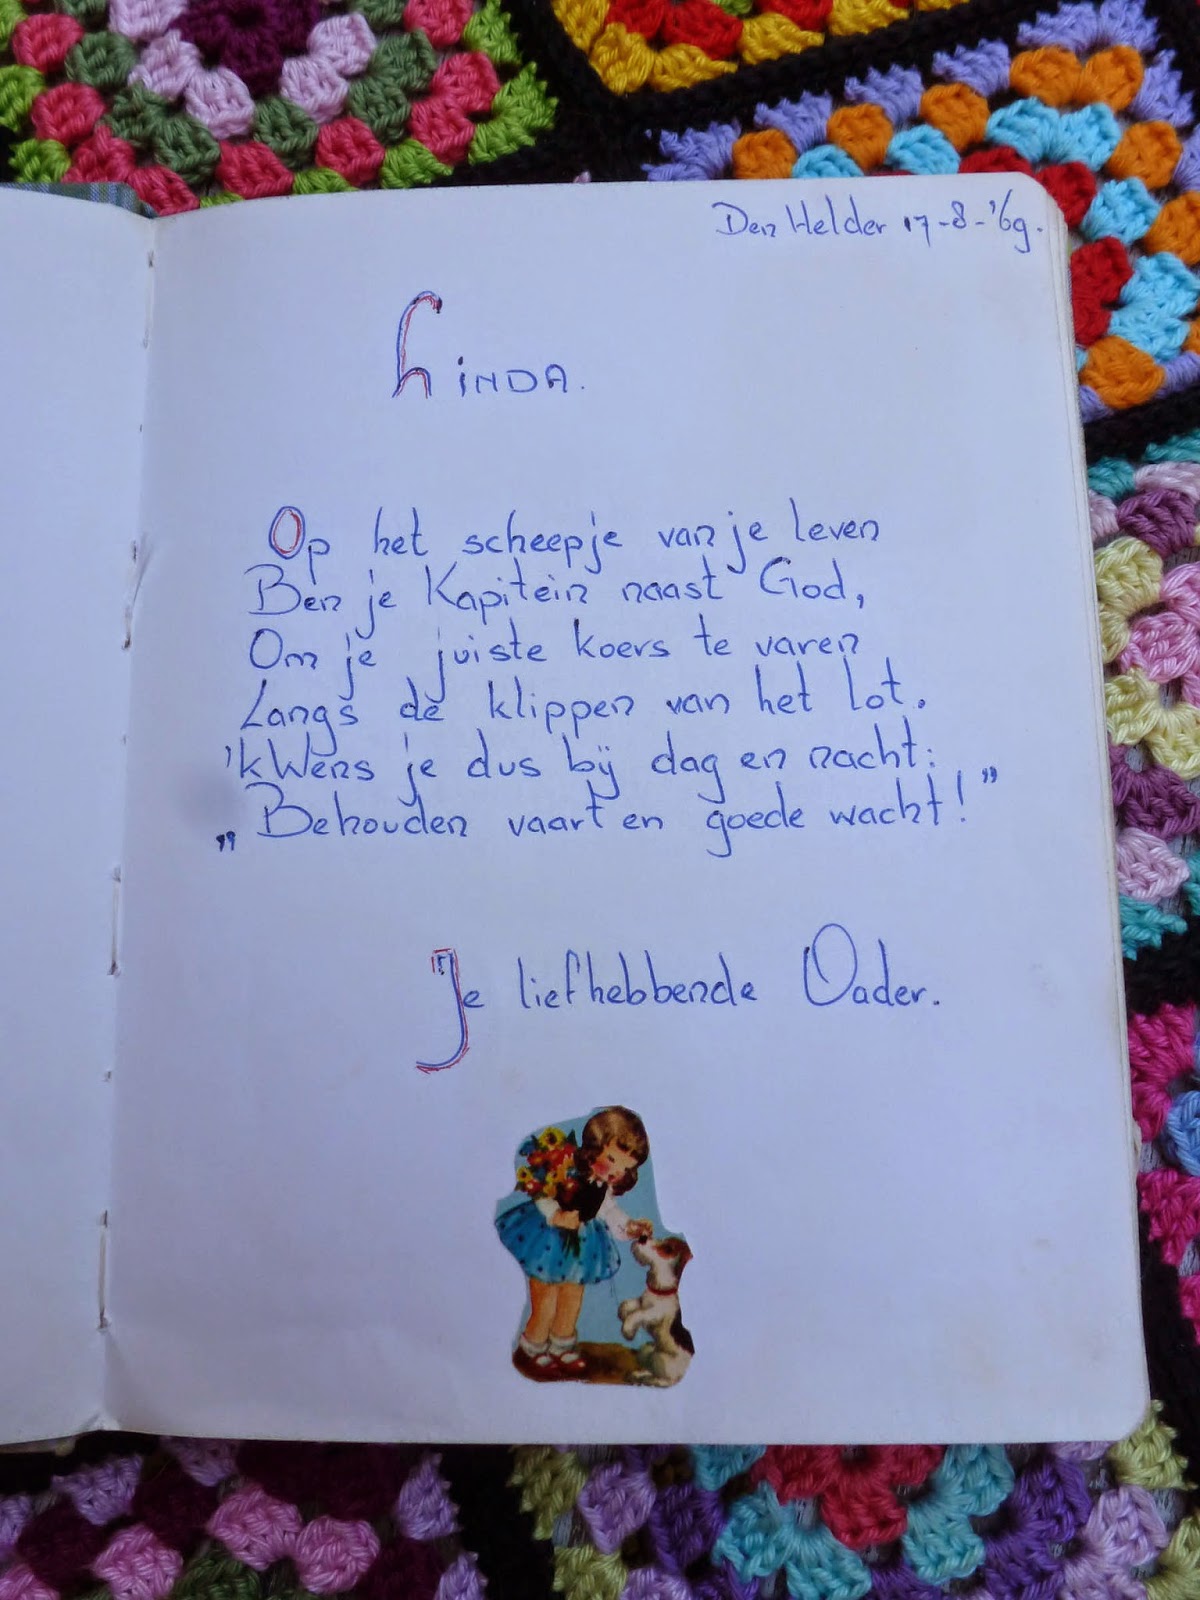 Den Helder 17-8-'69.
LiNDA.
Op het scheepje van je leven
Ben je Kapitein naast God,
Om je juiste koers te varen
Langs de klippen van het lot.
'k Wens je dus bij dag en nacht:
„Behouden vaart en goede wacht!”
Je liefhebbende Vader.